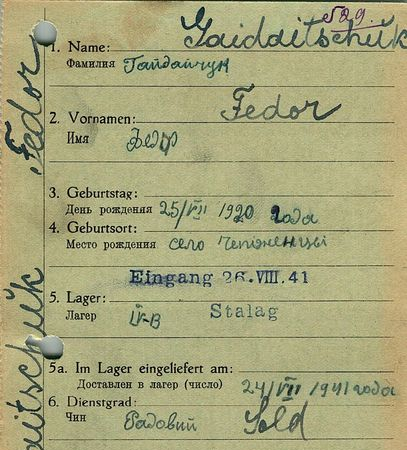 529.
1. Name: Gaidaitschuk
Фамилия Гайдайчук
2. Vornamen: Fedor
Имя Федр
3. Geburtstag:
День рождения 25/VII 1920 года
4. Geburtsort:
Место рождения село
Eingang 26.VIII.41
5. Lager: Stalag
Лагерь IV-B
5a. Im Lager eingeliefert am:
Доставлен в лагерь (число) 24/VIII 1941 года
6. Dienstgrad: Sold
Чин Радовий
Fedor